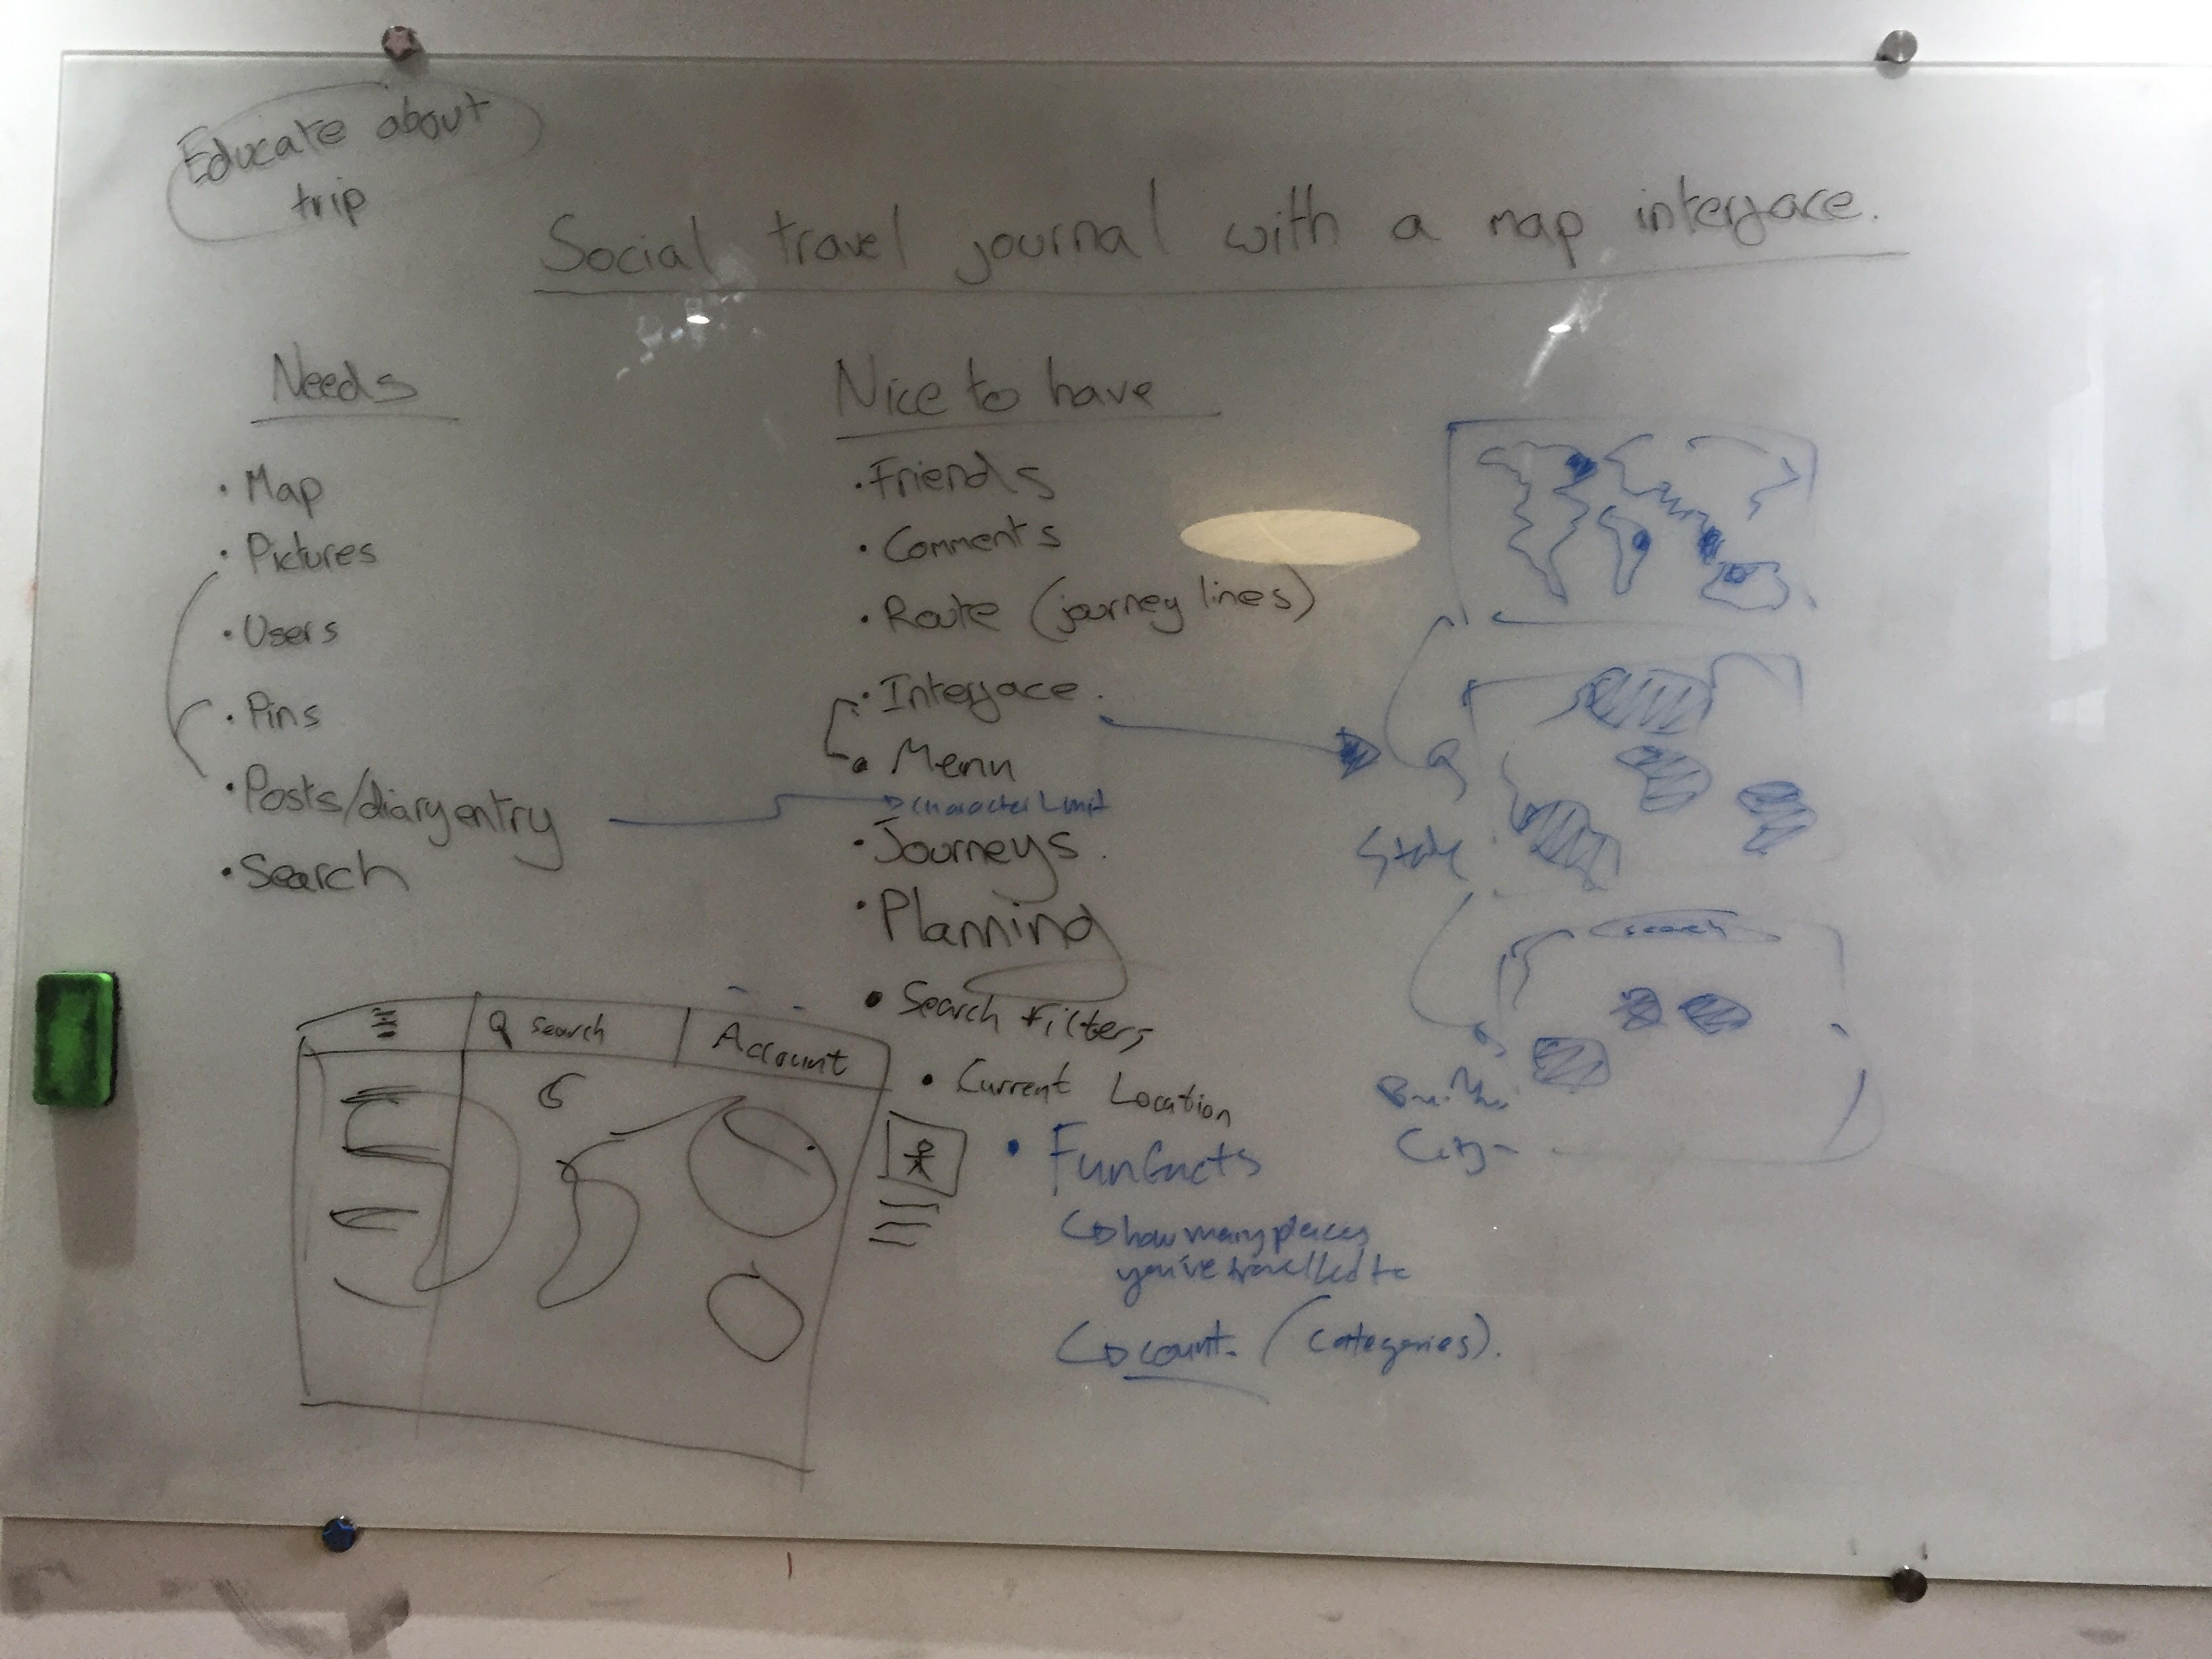 Educate about
trip
Social travel journal with a map interface.
Needs
• Map
• Pictures
• Users
• Pins
• Posts/diary entry
• Search
Nice to have
• Friends
• Comments
• Route (journey lines)
• Interface.
• Menu
Character Limit
• Journeys.
• Planning
• Search Filters
• Current Location
• Fun facts
how many places
you've travelled to
count. (categories).
search
Account
State
search
City